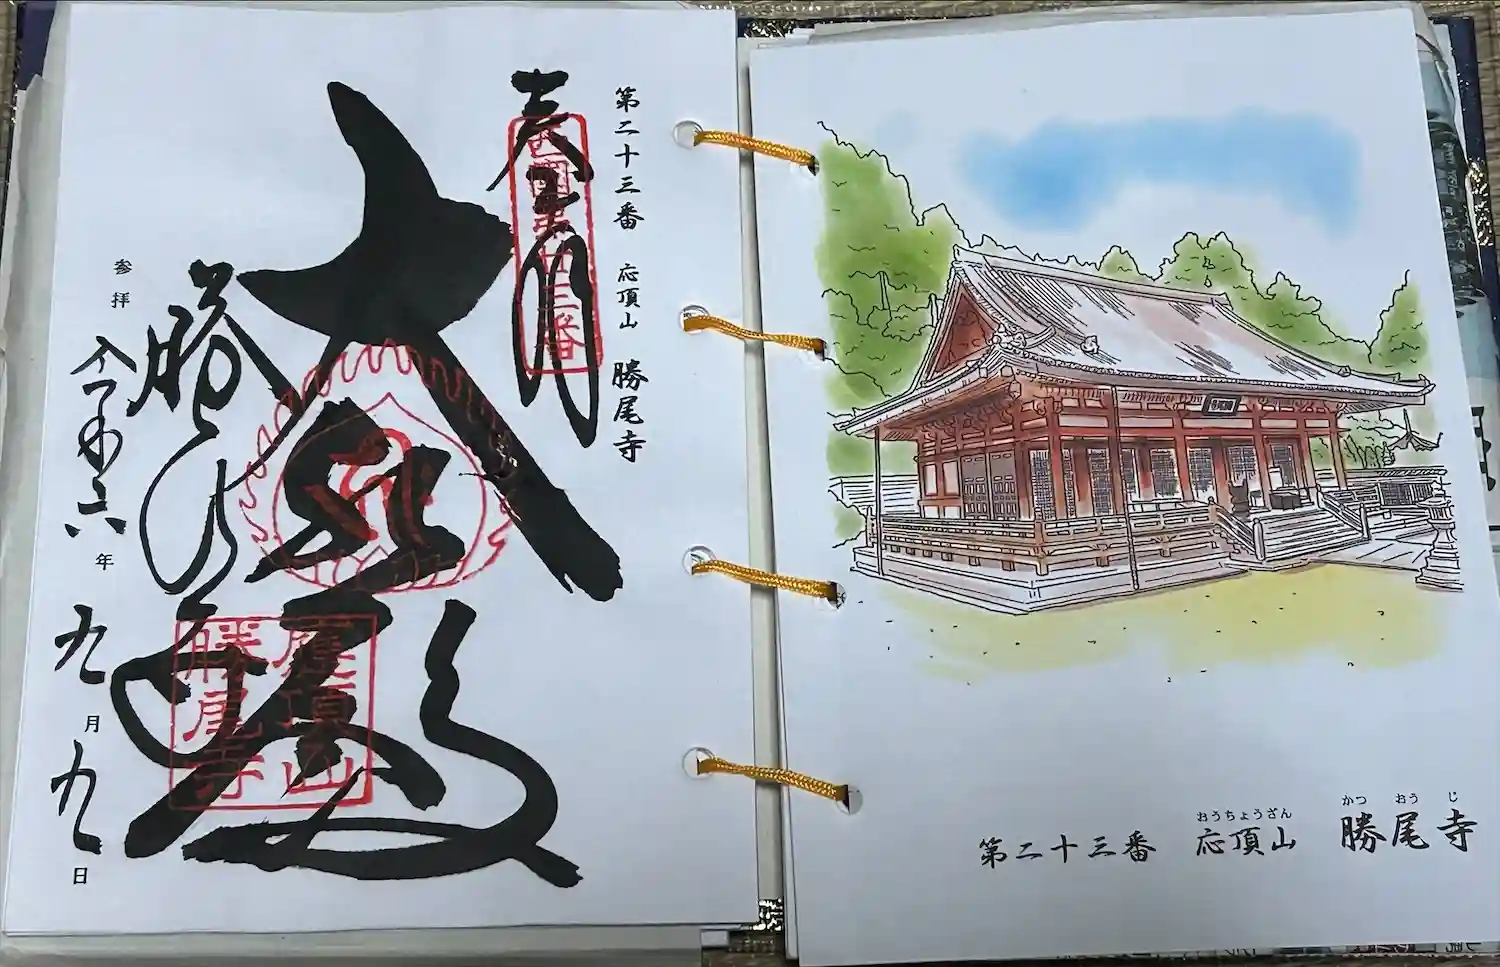 第二十三番 応頂山 勝尾寺
奉拝
西国第廿三番
大悲殿
應頂山
勝尾寺
勝尾寺
参拝 令和六年九月九日
おうちょうざん かつおうじ
第二十三番 応頂山 勝尾寺